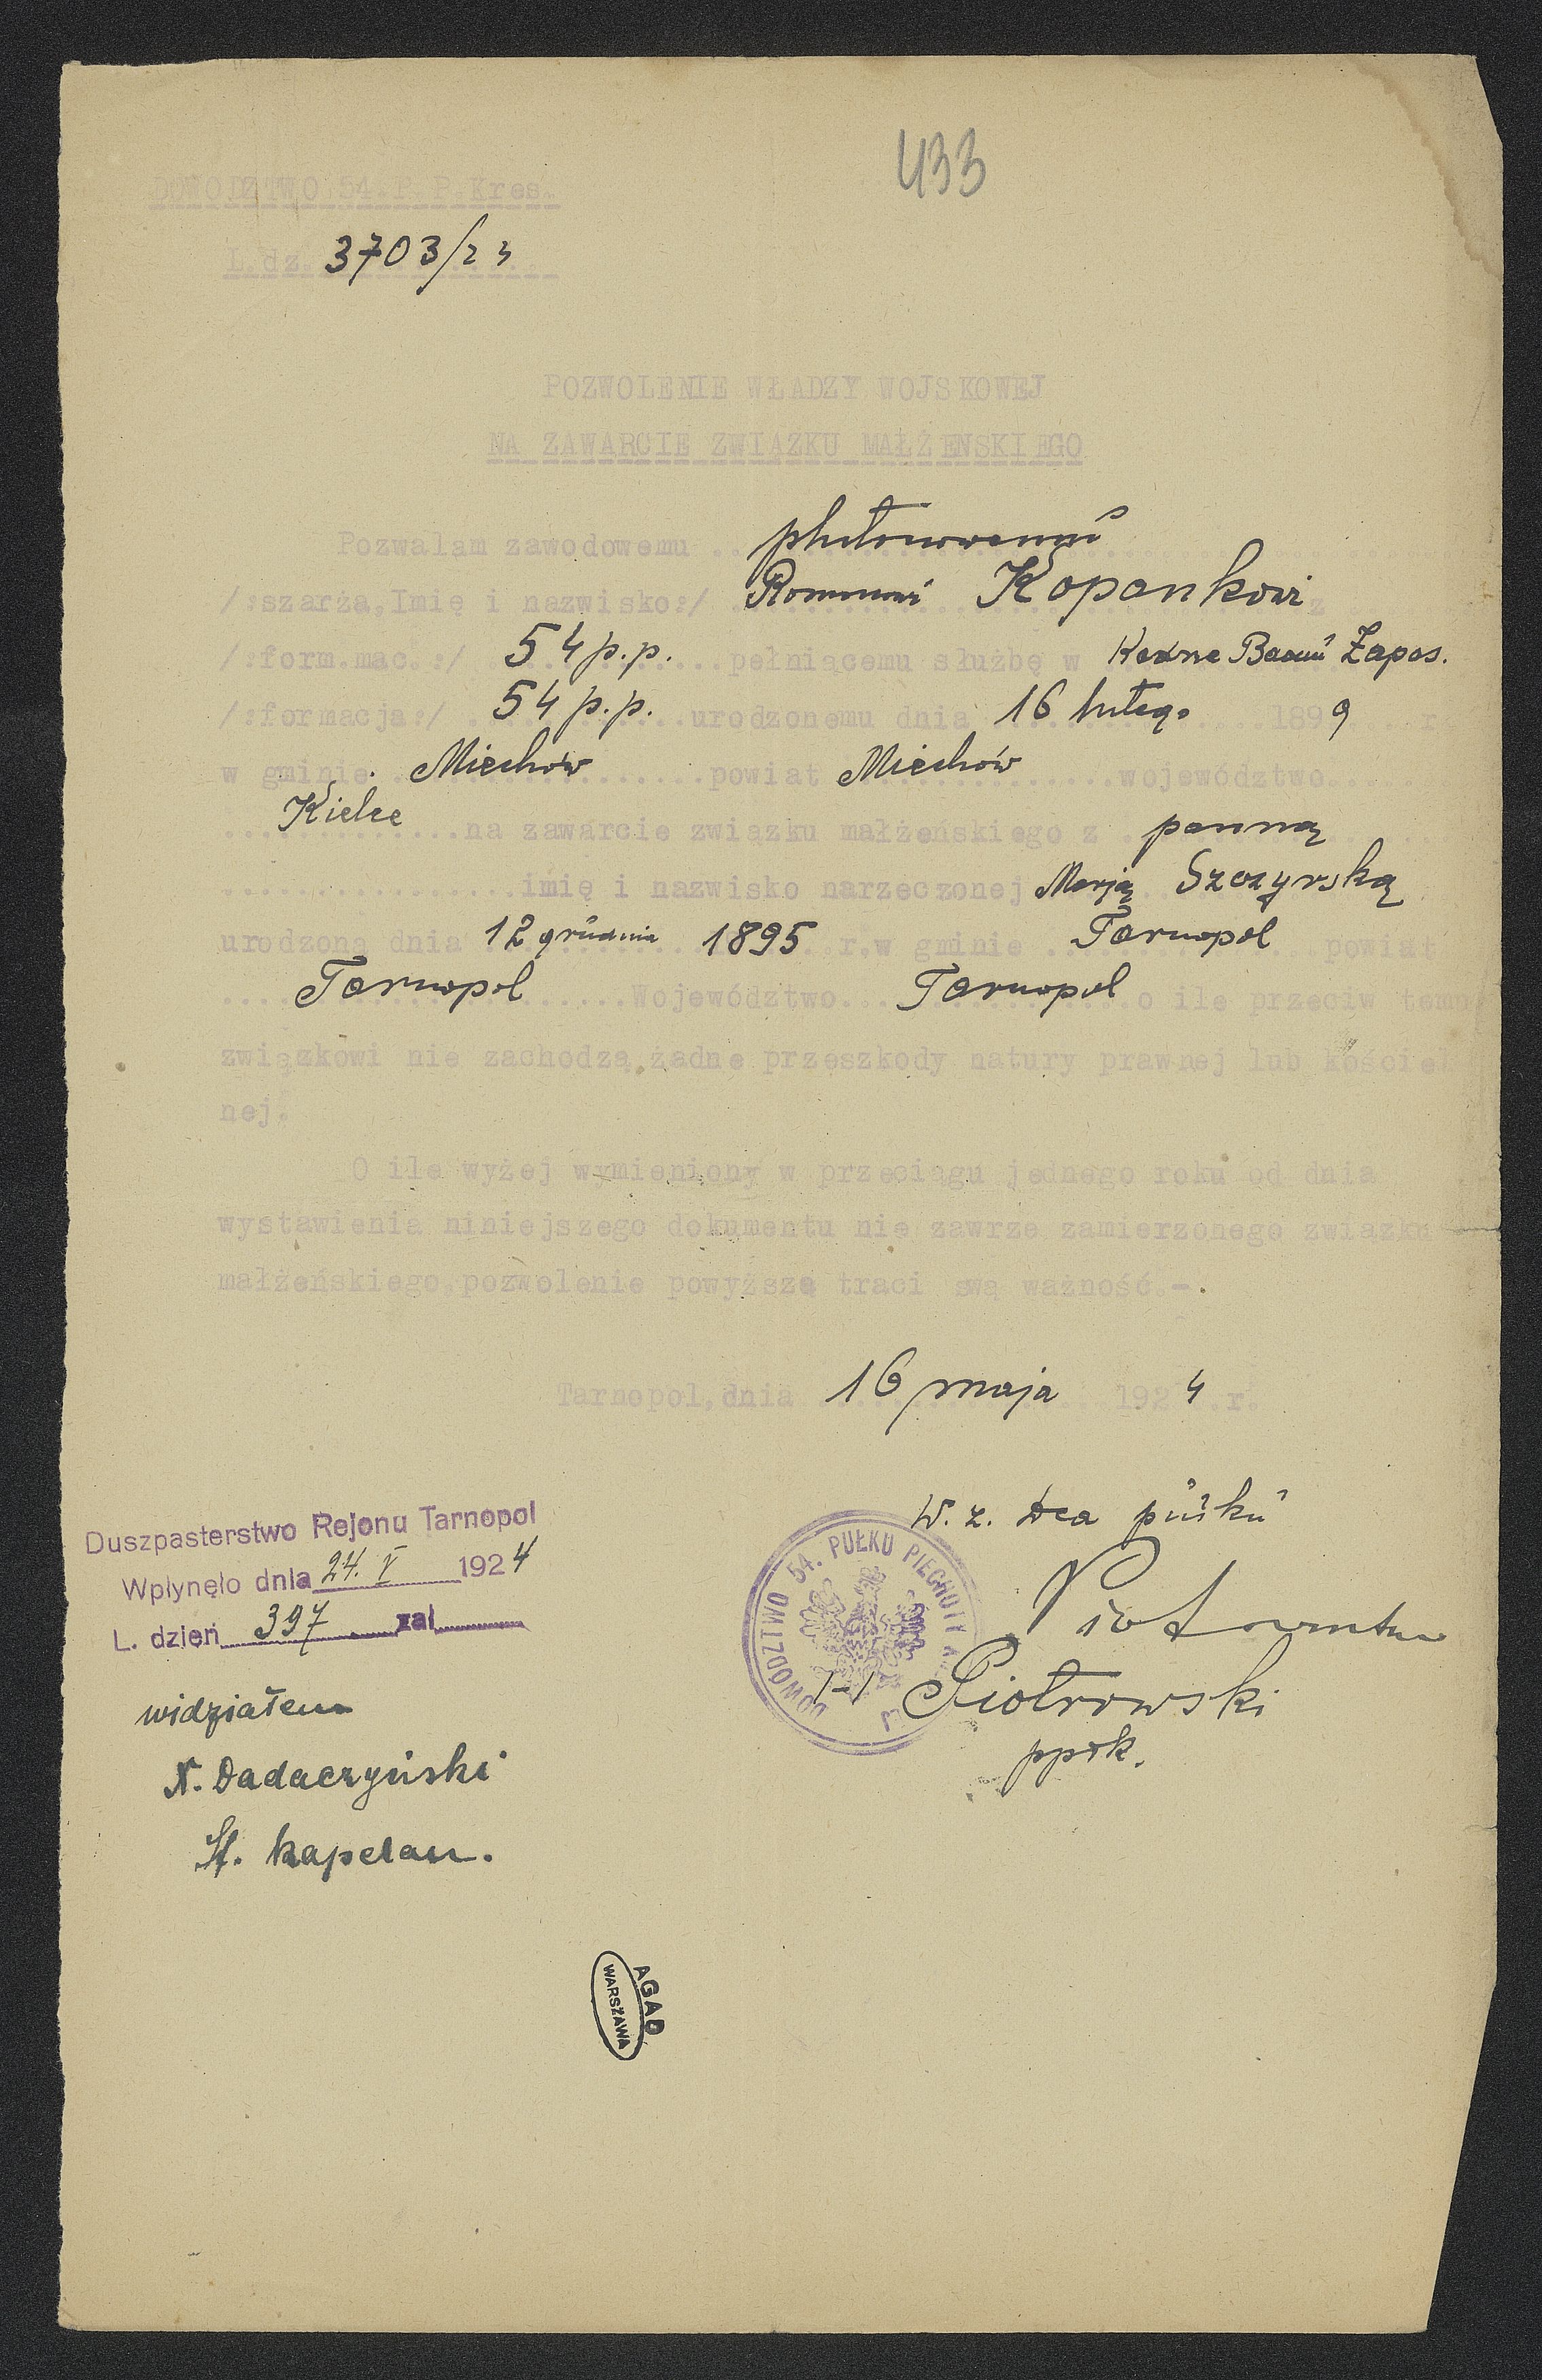 433
DOWÓDZTWO 54. P. P. Kres.
L. dz. 3703/23
POZWOLENIE WŁADZY WOJSKOWEJ
NA ZAWARCIE ZWIĄZKU MAŁŻENSKIEGO
Pozwalam zawodowemu plutonowemu
/:szarża, Imię i nazwisko:/ Romanowi Kopankowi
/:form.mac.:/ 54 p.p. pełniącemu służbę w Kadrze Baonu Zapas.
/:formacja:/ 54 p.p. urodzonemu dnia 16 lutego 1899 r
w gminie Miechów powiat Miechów województwo
Kielce na zawarcie związku małżeńskiego z panną
imię i nazwisko narzeczonej Marją Szczyrską
urodzoną dnia 12 grudnia 1895 r. w gminie Tarnopol powiat
Tarnopol Województwo Tarnopol o ile przeciw temu
związkowi nie zachodzą żadne przeszkody natury prawnej lub kościel
nej.
O ile wyżej wymieniony w przeciągu jednego roku od dnia
wystawienia niniejszego dokumentu nie zawrze zamierzonego związku
małżeńskiego, pozwolenie powyższe traci swą ważność.-.
Tarnopol, dnia 16 maja 1924 r.
W. z. Dca pułku
DOWÓDZTWO 54. PUŁKU PIECHOTY
/-/ Piotrowski
ppłk.
Duszpasterstwo Rejonu Tarnopol
Wpłynęło dnia 24. V 1924
L. dzień 397 zał
widziałem
N. Dadaczyński
St. kapelan.
AGAD
WARSZAWA